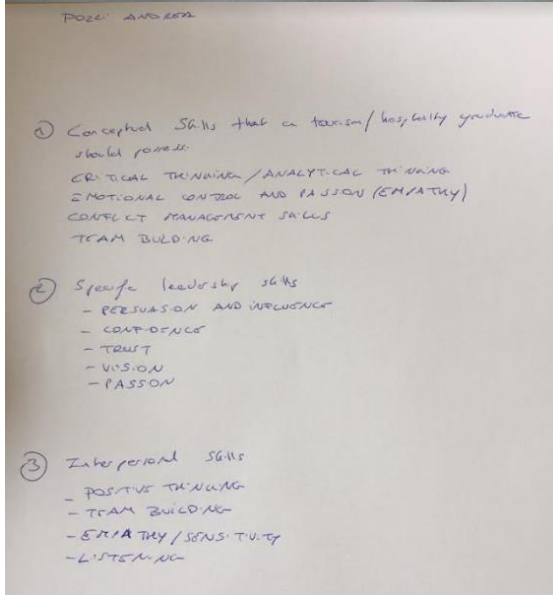 POZZI ANDREA
① Conceptual Skills that a tourism/hospitality graduate
should possess:
CRITICAL THINKING / ANALYTICAL THINKING
EMOTIONAL CONTROL AND PASSION (EMPATHY)
CONFLICT MANAGEMENT SKILLS
TEAM BUILDING
② Specific leadership skills
- PERSUASION AND INFLUENCE
- CONFIDENCE
- TRUST
- VISION
- PASSION
③ Interpersonal skills
- POSITIVE THINKING
- TEAM BUILDING
- EMPATHY / SENSITIVITY
- LISTENING